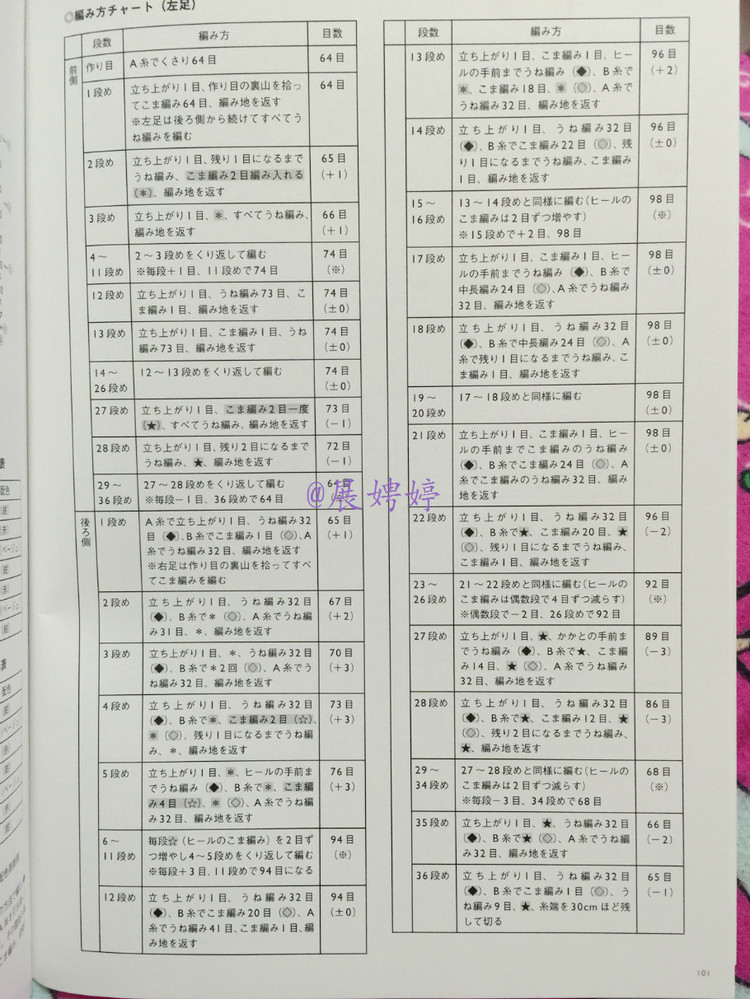 ◎編み方チャート（左足）
段数 編み方 目数
前側
作り目 A糸でくさり64目 64目
1段め 立ち上がり1目、作り目の裏山を拾っ 64目
てこま編み64目、編み地を返す
※左足は後ろ側から続けてすべてう
ね編みを編む
2段め 立ち上がり1目、残り1目になるまで 65目
うね編み、こま編み2目編み入れる （+1）
（＊）、編み地を返す
3段め 立ち上がり1目、＊、すべてうね編み、 66目
編み地を返す （+1）
4～ 2～3段めをくり返して編む 74目
11段め ※毎段+1目、11段めで74目 （※）
12段め 立ち上がり1目、うね編み73目、こ 74目
ま編み1目、編み地を返す （±0）
13段め 立ち上がり1目、こま編み1目、うね 74目
編み73目、編み地を返す （±0）
14～ 12～13段めをくり返して編む 74目
26段め （±0）
27段め 立ち上がり1目、こま編み2目一度 73目
（★）、すべてうね編み、編み地を返す （−1）
28段め 立ち上がり1目、残り2目になるまで 72目
うね編み、★、編み地を返す （−1）
29～ 27～28段めをくり返して編む 64目
36段め ※毎段−1目、36段めで64目
@展娉婷
後ろ側
1段め A糸で立ち上がり1目、うね編み32 65目
目（◆）、B糸でこま編み1目（◎）、A （+1）
糸でうね編み32目、編み地を返す
※右足は作り目の裏山を拾ってすべ
てこま編みを編む
2段め 立ち上がり1目、うね編み32目 67目
（◆）、B糸で＊（◎）、A糸でうね編 （+2）
み31目、＊、編み地を返す
3段め 立ち上がり1目、＊、うね編み32目 70目
（◆）、B糸で＊2回（◎）、A糸でう （+3）
ね編み32目、編み地を返す
4段め 立ち上がり1目、うね編み32目 73目
（◆）、B糸で＊、こま編み2目（☆）、 （+3）
＊（◎）、残り1目になるまでうね編
み、＊、編み地を返す
5段め 立ち上がり1目、＊、ヒールの手前ま 76目
でうね編み（◆）、B糸で＊、こま編 （+3）
み4目（☆）、＊（◎）、A糸でうね編
み32目、編み地を返す
6～ 毎段☆（ヒールのこま編み）を2目ず 94目
11段め つ増やし4～5段めをくり返して編む （※）
※毎段+3目、11段めで94目になる
12段め 立ち上がり1目、うね編み32目 94目
（◆）、B糸でこま編み20目（◎）、A （±0）
糸でうね編み41目、こま編み1目、編
み地を返す
13段め 立ち上がり1目、こま編み1目、ヒー 96目
ルの手前までうね編み（◆）、B糸で （+2）
＊、こま編み18目、＊（◎）、A糸で
うね編み32目、編み地を返す
14段め 立ち上がり1目、うね編み32目 96目
（◆）、B糸でこま編み22目（◎）、残 （±0）
り1目になるまでうね編み、こま編み
1目、編み地を返す
15～ 13～14段めと同様に編む（ヒールの 98目
16段め こま編みは2目ずつ増やす） （※）
※15段めで+2目、98目
17段め 立ち上がり1目、こま編み1目、ヒー 98目
ルの手前までうね編み（◆）、B糸で （±0）
中長編み24目（◎）、A糸でうね編み
32目、編み地を返す
18段め 立ち上がり1目、うね編み32目 98目
（◆）、B糸で中長編み24目（◎）、A （±0）
糸で残り1目になるまでうね編み、こ
ま編み1目、編み地を返す
19～ 17～18段めと同様に編む 98目
20段め （±0）
21段め 立ち上がり1目、こま編み1目、ヒー 98目
ルの手前までこま編みのうね編み （±0）
（◆）、B糸でこま編み24目（◎）、A
糸でこま編みのうね編み32目、編み
地を返す
22段め 立ち上がり1目、うね編み32目 96目
（◆）、B糸で★、こま編み20目、★ （−2）
（◎）、残り1目になるまでうね編み、
こま編み1目、編み地を返す
23～ 21～22段めと同様に編む（ヒールの 92目
26段め こま編みは偶数段で4目ずつ減らす） （※）
※偶数段で−2目、26段めで92目
27段め 立ち上がり1目、★、かかとの手前ま 89目
でうね編み（◆）、B糸で★、こま編 （−3）
み14目、★（◎）、A糸でうね編み
32目、編み地を返す
28段め 立ち上がり1目、うね編み32目 86目
（◆）、B糸で★、こま編み12目、★ （−3）
（◎）、残り2目になるまでうね編み、
★、編み地を返す
29～ 27～28段めと同様に編む（ヒールの 68目
34段め こま編みは2目ずつ減らす） （※）
※毎段−3目、34段めで68目
35段め 立ち上がり1目、★、うね編み32目 66目
（◆）、B糸で★（◎）、A糸でうね編 （−2）
み32目、編み地を返す
36段め 立ち上がり1目、うね編み32目 65目
（◆）、B糸でこま編み1目（◎）、う （−1）
ね編み9目、★、糸端を30cmほど残
して切る
101
表
配色